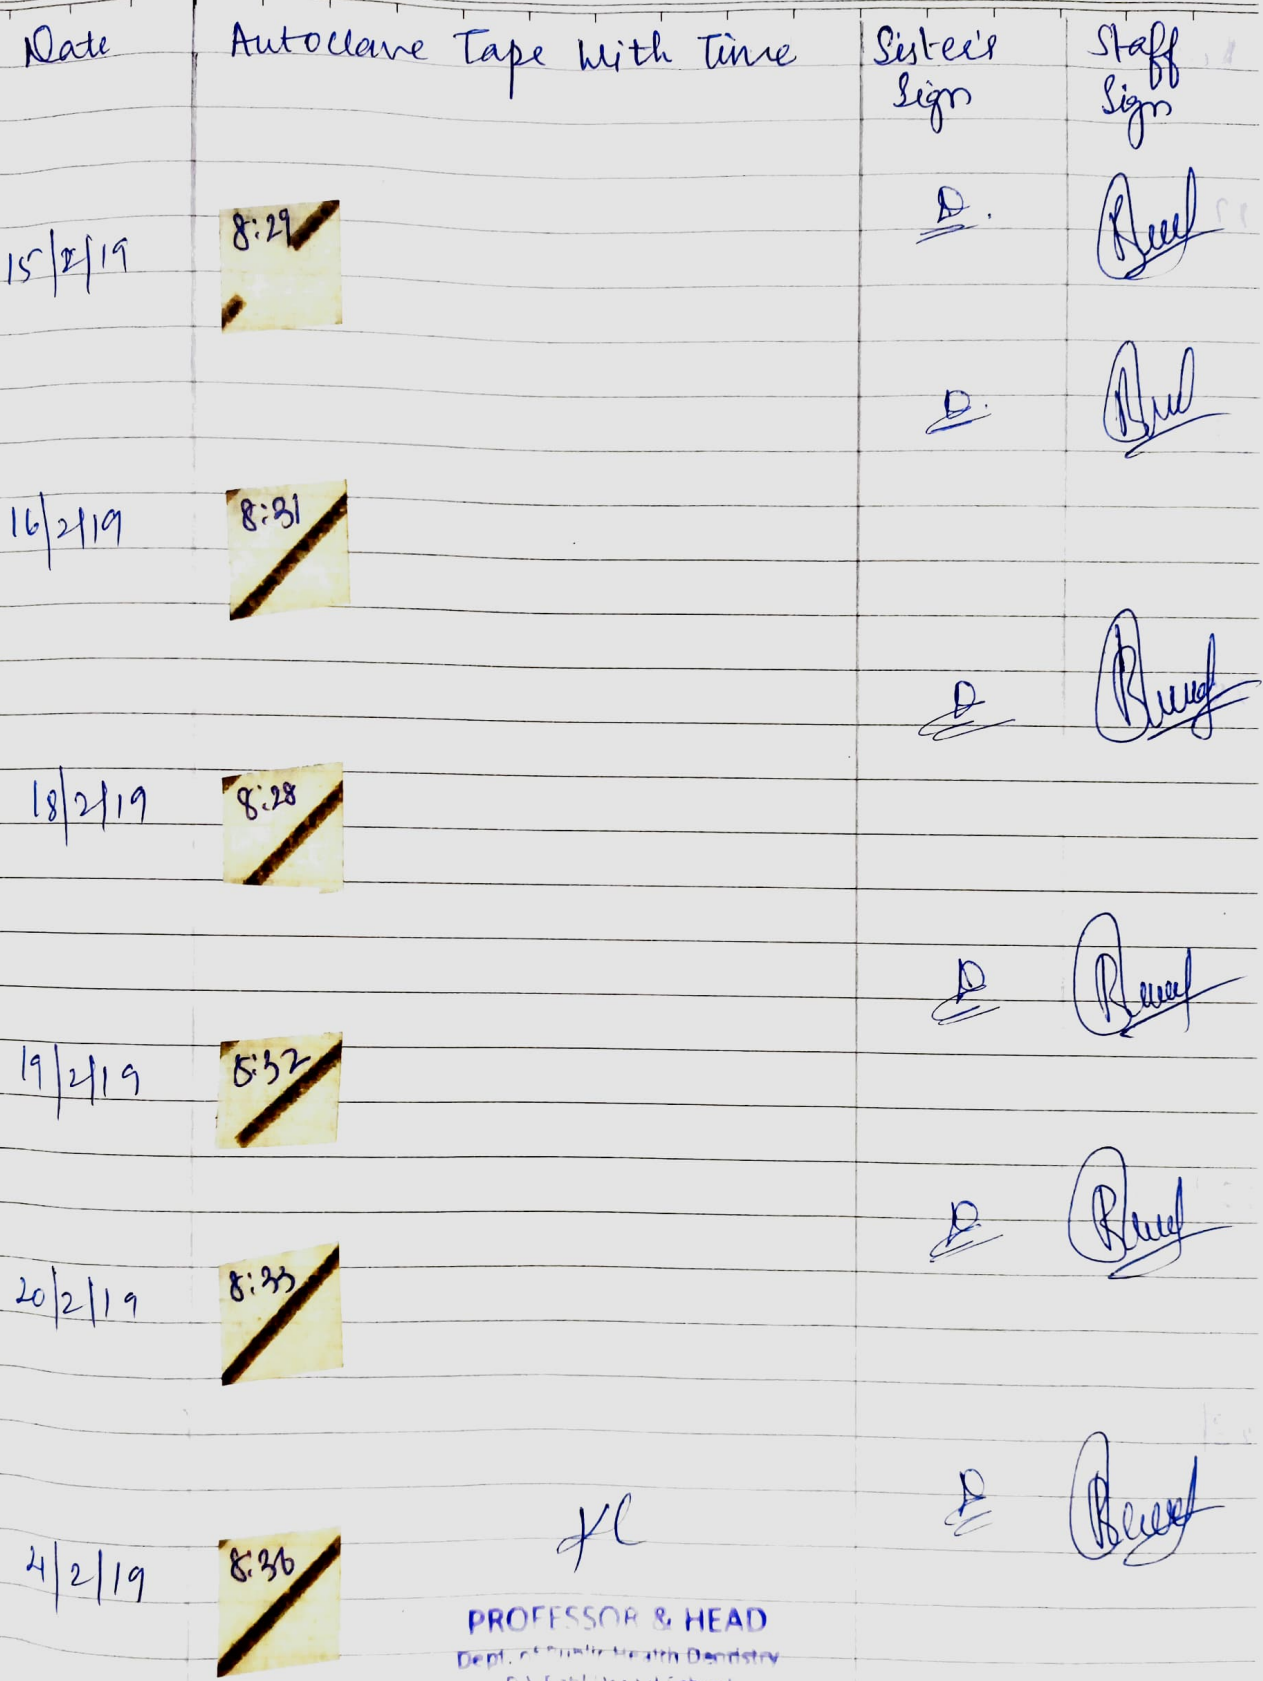 Date Autoclave Tape With Time Sister's Sign Staff Sign
15/2/19 8:29
16/2/19 8:31
18/2/19 8:28
19/2/19 8:32
20/2/19 8:33
4/2/19 8:36
PROFESSOR & HEAD
Dept. of Public Health Dentistry